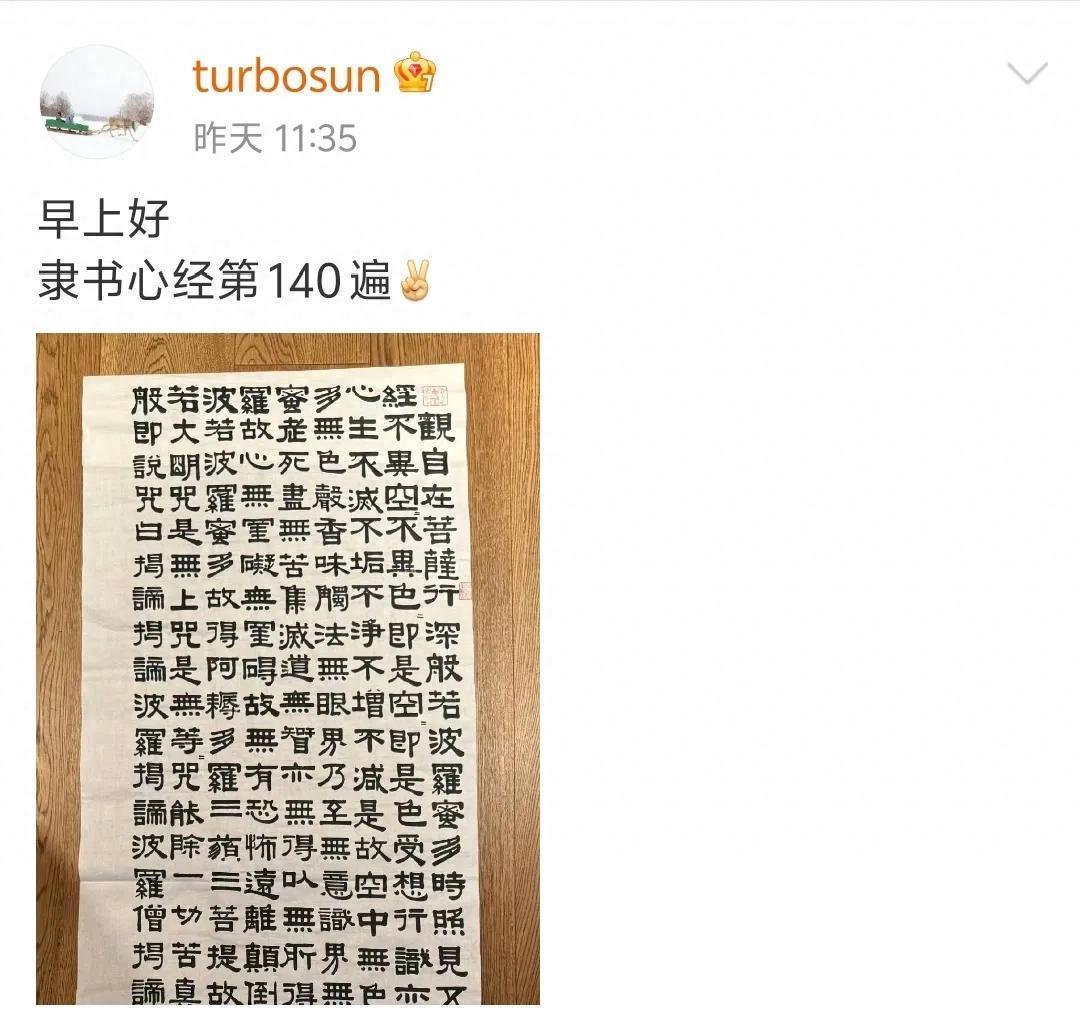 turbosun
昨天 11:35
早上好
隶书心经第140遍✌
般若波羅蜜多心經
觀自在菩薩行深般若波羅蜜多時照見五
不異空〻不異色〻即是空〻即是色受想行識亦
生不滅不垢不淨不增不減是故空中無色
無色聲香味觸法無眼界乃至無意識界無
老死盡無苦集滅道無智亦無得以無所得
故心無罣礙無罣碍故無有恐怖遠離顛倒
若波羅蜜多故得阿耨多羅三藐三菩提故
大明咒是無上咒是無等〻咒能除一切苦真
即說咒曰揭諦揭諦波羅揭諦波羅僧揭諦